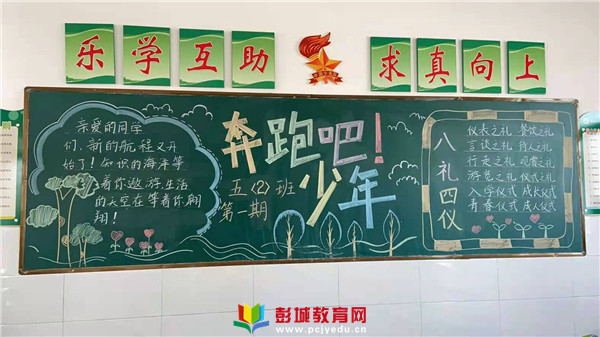 乐学互助
求真向上
亲爱的同学
们,新的航程又开
始了!知识的海洋等
着你遨游,生活
的天空在等着你翱
翔!
奔跑吧!
少年
五(2)班
第一期
八礼四仪
仪表之礼 餐饮之礼
言谈之礼 待人之礼
行走之礼 观赏之礼
游览之礼 仪式之礼
入学仪式 成长仪式
青春仪式 成人仪式
彭城教育网
www.pcjyedu.cn